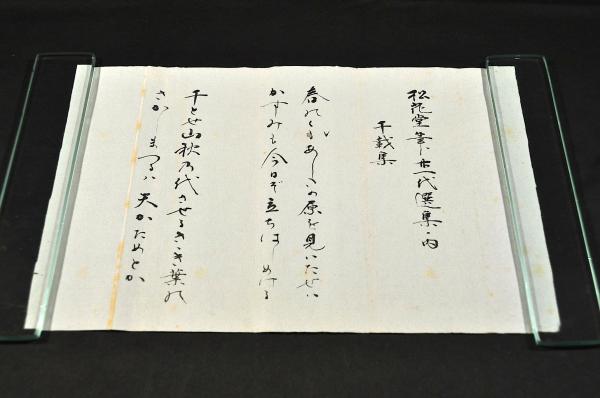 松花堂筆に廿一代選集の内
千載集
春のくるあしたの原を見わたせは
かすみも今日そ立ちはしめける
千とせ山
秋の代させる
葉の
さか
まつるは
天かためとか